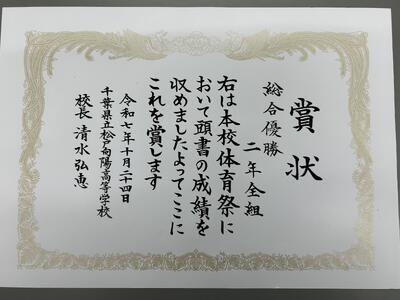 賞状
総合優勝
二年全組
右は本校体育祭に
おいて頭書の成績を
収めましたよってここに
これを賞します
令和七年十月二十四日
千葉県立松戸向陽高等学校
校長 清水弘恵